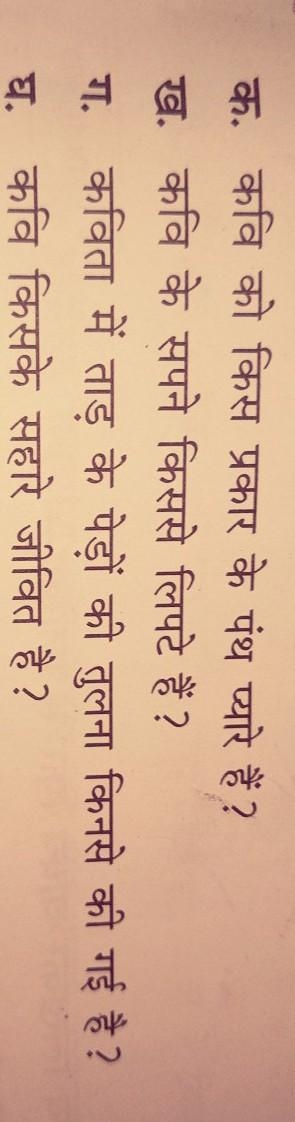 क. कवि को किस प्रकार के पंथ प्यारे हैं?
ख. कवि के सपने किससे लिपटे हैं?
ग. कविता में ताड़ के पेड़ों की तुलना किनसे की गई है?
घ. कवि किसके सहारे जीवित है?